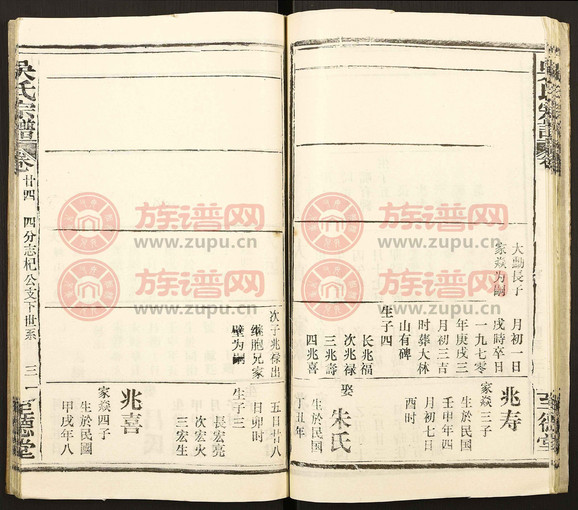 大勳長子
家焱为嗣
月初一日
戌時卒日
一九七零
年庚戌三
月初三吉
时葬大林
山有碑
生子四
长兆福
次兆禄
三兆壽
四兆喜
兆寿
家焱三子
生於民國
壬申年四
月初七日
酉时
娶
朱氏
生於民國
丁丑年
吳氏宗譜
卷廿四
四分志杞公支下世系
三一
至德堂
次子兆禄出
继胞兄家
壁为嗣
五日廿八
日卯时
生子三
長宏亮
次宏火
三宏生
兆喜
家焱四子
生於民國
甲戌年八
族谱网
www.zupu.cn
族谱网
www.zupu.cn
族谱网
www.zupu.cn
族谱网
www.zupu.cn